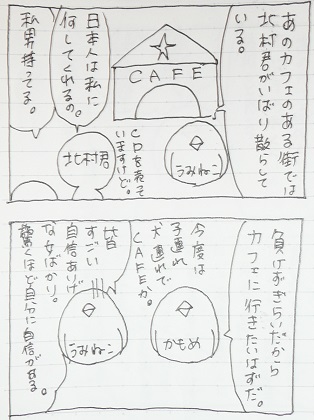 あのカフェのある街では
北村君がいばり散らして
いる。
CAFE
うみねこ
CDを売って
いますけど。
北村君
日本人は私に
何してくれるの。
私男持ってる。
負けずぎらいだから
カフェに行きたいはずだ。
かもめ
今度は
子連れ
犬連れで
CAFEか。
うみねこ
皆
すごい
自信ありげ
な女ばかり。
驚くほど自分に自信がある。